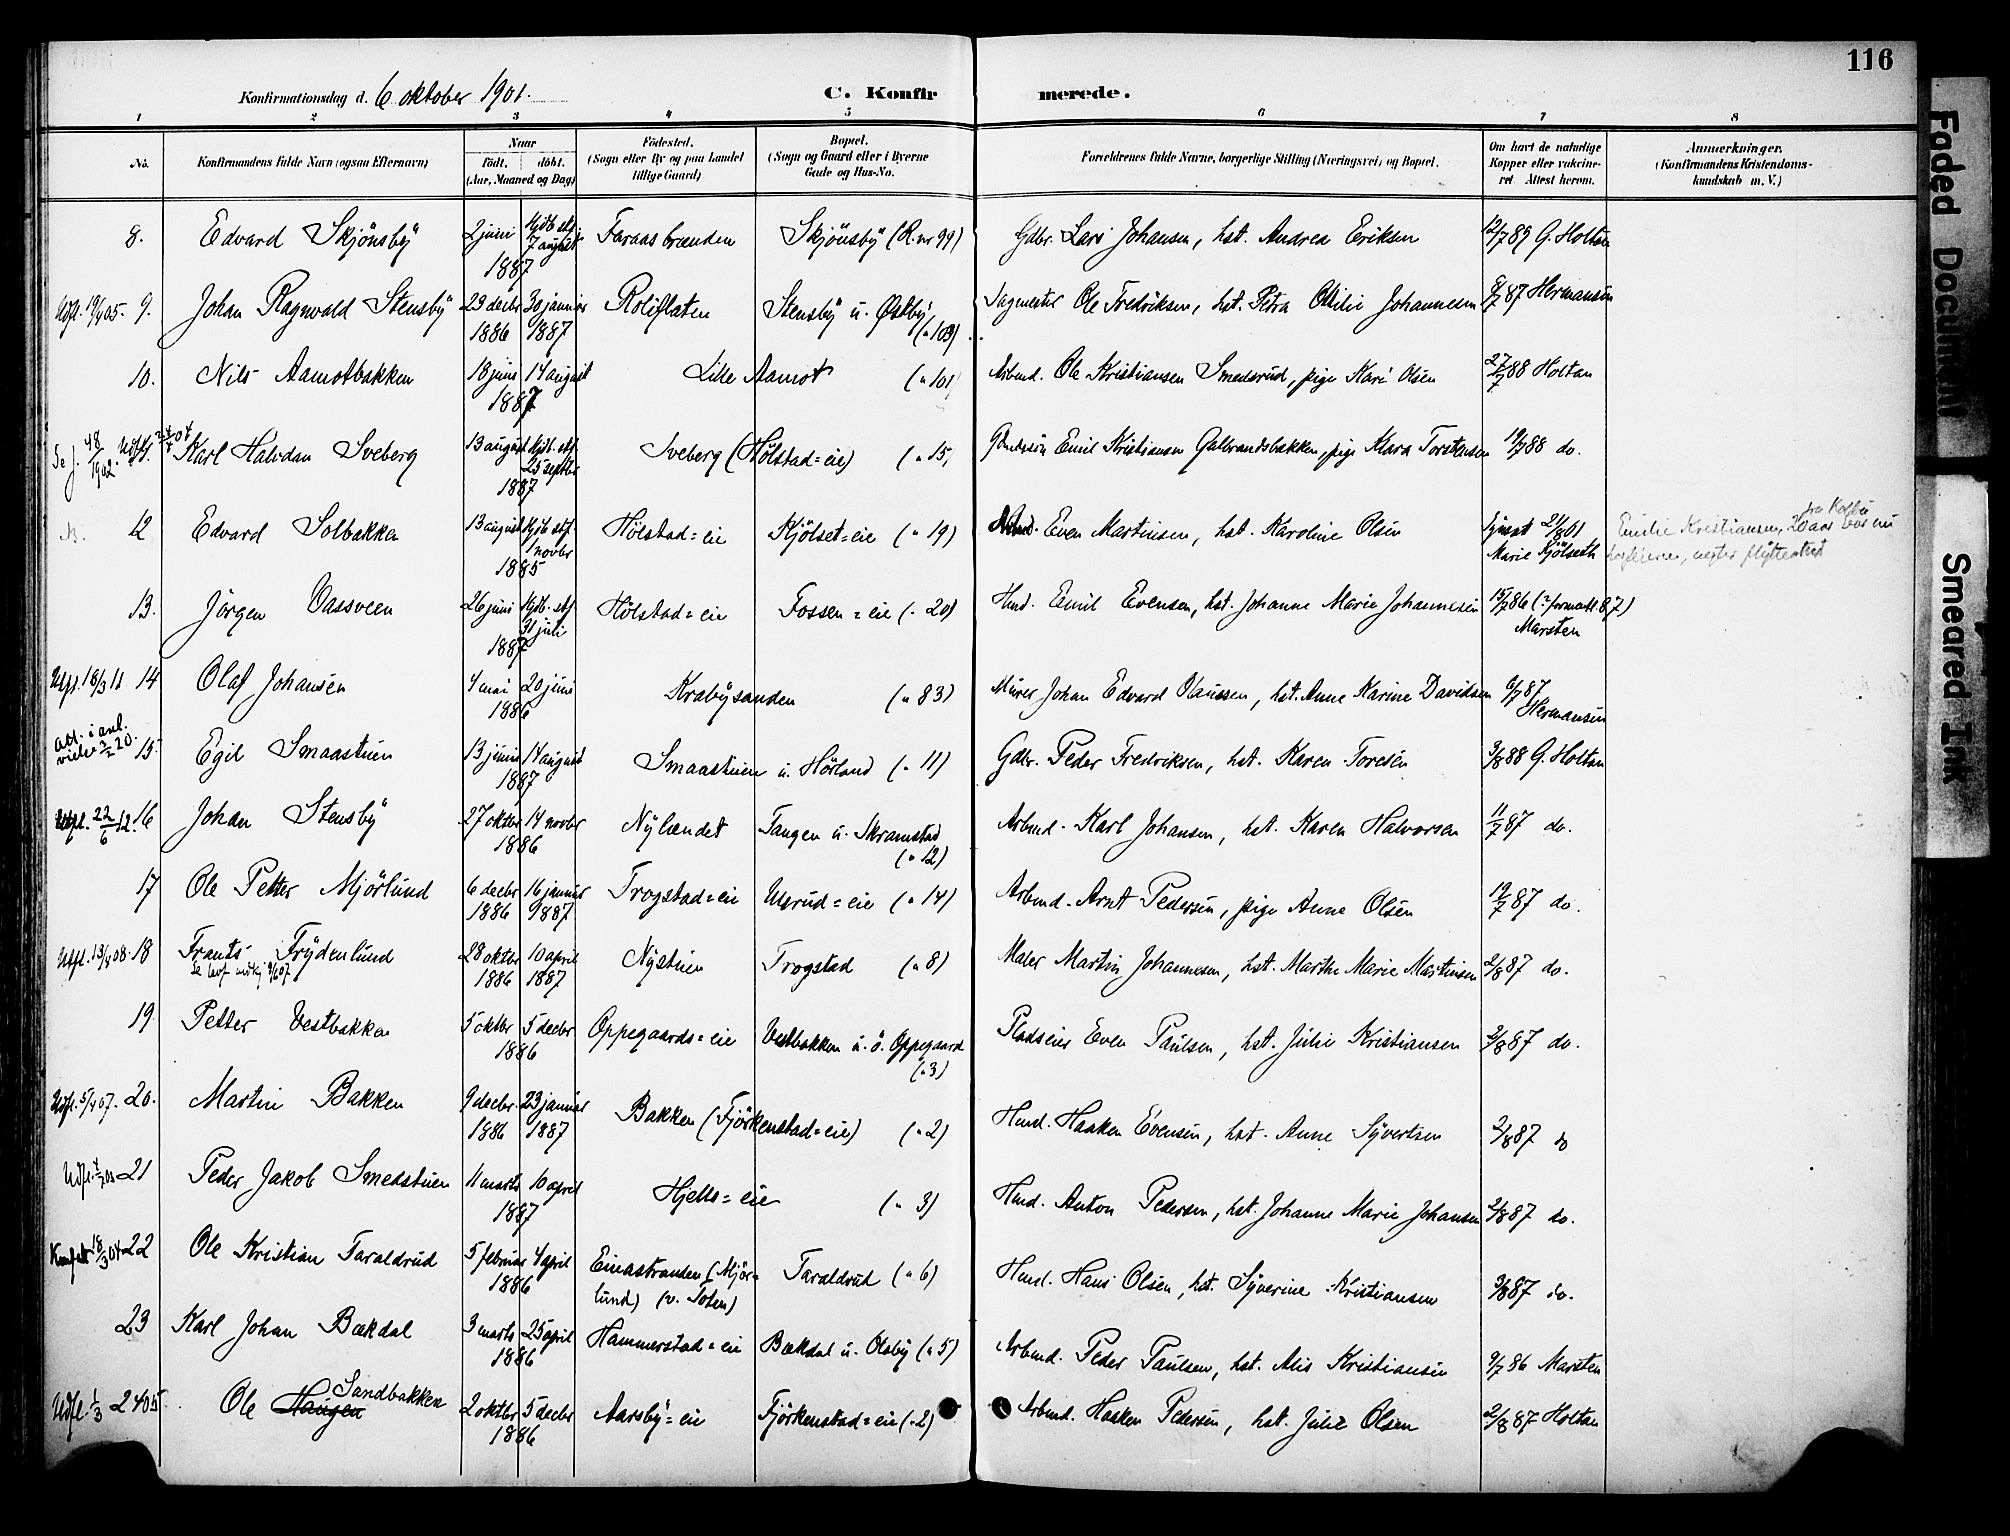 116
Konfirmationsdag d. 6 oktober 1901.
C. Konfirmerede.
1 2 3 4 5 6 7 8
No.
Konfirmandens fulde Navn (ogsaa Efternavn)
Naar
födt. döbt.
(Aar, Maaned og Dag)
Födested.
(Sogn eller By og paa Landet
tillige Gaard)
Bopæl.
(Sogn og Gaard eller i Byerne
Gade og Hus-No.
Forældrenes fulde Navne, borgerlige Stilling (Næringsvei) og Bopæl.
Om havt de naturlige
Kopper eller vaccine-
ret Attest herom.
Anmerkninger.
(Konfirmandens Kristendoms-
kundskab m. V.)
8. Edvard Skjönsby 2 juni 1887 Hjdb. stf. 7 august Faraasbrænden Skjönsby (R. nr 99) Gdbr. Lars Johansen, hst. Andrea Eriksen 12/7 89 G. Holtan
Udfl. 19/4 05. 9. Johan Ragnvald Stensby 23 decbr 1886 30 januar 1887 Roliflaten Stensby u. Østby („ 103) Sagmester Ole Fredriksen, hst. Petra Otilie Johannesen 8/7 87 Hermansen
10. Nils Aamotbakken 18 juni 14 august 1887 Lille Aamot („ 101) Arbmd. Ole Kristiansen Smedsrud, pige Kari Olsen 27/7 88 Holtan
Se j. 48/1902. Udfl. 24/4 04 Karl Halvdan Sveberg 13 august Hjdb. stf. 25 septbr 1887 Sveberg (Hölstad=eie) („ 15) Emil Kristiansen Galbrandsbakken, pige Klara Torstensen 19/7 88 do.
12 Edvard Solbakken 13 august Hjdb. stf. 1 novbr 1885 Hölstad=eie Kjölset=eie („ 19) Arbmd. Even Martinsen, hst. Karoline Olsen 21/8 01 Marie Kjölseth Emilie Kristiansen, fra Kolbu 20 aar
13. Jörgen Vassveen 26 juni Hjdb. stf. 31 juli 1887 Hölstad=eie Fossen=eie („ 20) Hmd. Emil Evensen, hst. Johanne Marie Johannesen 15/7 86 (? formentl. 87) Marsten
Udfl. 18/3 11 14 Olaf Johansen 4 mai 20 juni 1886 Krabysanden („ 83) Murer Johan Edvard Olaussen, hst. Anne Karine Davidsen 6/7 87 Hermansen
Att. i anl. vielse 2/2 20. 15. Egil Smaastuen 13 juni 14 august 1887 Smaastuen u. Hörland („ 11) Gdbr. Peder Fredriksen, hst. Karen Toresen 3/8 88 G. Holtan
Udfl. 22/6 12. 16 Johan Stensby 27 oktbr 14 novbr 1886 Nylændet Tangen u. Skramstad („ 12) Arbmd. Karl Johansen, hst. Karen Halvorsen 11/7 87 do.
17 Ole Petter Mjörlund 6 decbr 1886 16 januar 1887 Trogstad=eie Ulsrud=eie („ 14) Arbmd. Arnt Pedersen, pige Anne Olsen 19/7 87 do.
Udfl. 13/4 08. 18 Frants Frydenlund 28 oktbr 1886 10 april 1887 Nystuen Trogstad („ 8) Maler Martin Johannesen, hst. Marthe Marie Martinsen 2/8 87 do.
19. Petter Vestbakken 5 oktbr 5 decbr 1886 Oppegaards=eie Vestbakken u. ö. Oppegaard („ 3) Pladseier Even Paulsen, hst. Julie Kristiansen 2/8 87 do.
Udfl. 5/4 07. 20. Martin Bakken 9 decbr. 1886 23 januar 1887 Bakken (Fjörkenstad=eie) („ 2) Hmd. Haaken Evensen, hst. Anne Syvertsen 2/8 87 do
Udfl. 4/7 03 21 Peder Jakob Smedstuen 11 marts 10 april 1887 Hjells=eie („ 3) Hmd. Anton Pedersen, hst. Johanne Marie Johansen 2/8 87 do.
18/3 04 22 Ole Kristian Taraldrud 5 februar 4 april 1886 Einastranden (Mjörlund) (v. Toten) Taraldrud („ 6) Hmd. Hans Olsen, hst. Syverine Kristiansen 3/8 87 do.
23 Karl Johan Bækdal 3 marts 25 april 1886 Hammerstad=eie Bækdal u. Olsby („ 5) Arbmd. Peder Paulsen, hst. Alis Kristiansen 9/7 86 Marsten
Udfl. 1/3 05 24 Ole Haugen Sandbakken 2 oktbr 5 decbr 1886 Aarsby=eie Fjörkenstad=eie („ 2) Arbmd. Haaken Pedersen, hst. Julie Olsen 2/8 87 Holtan
Faded Document
Smeared Ink